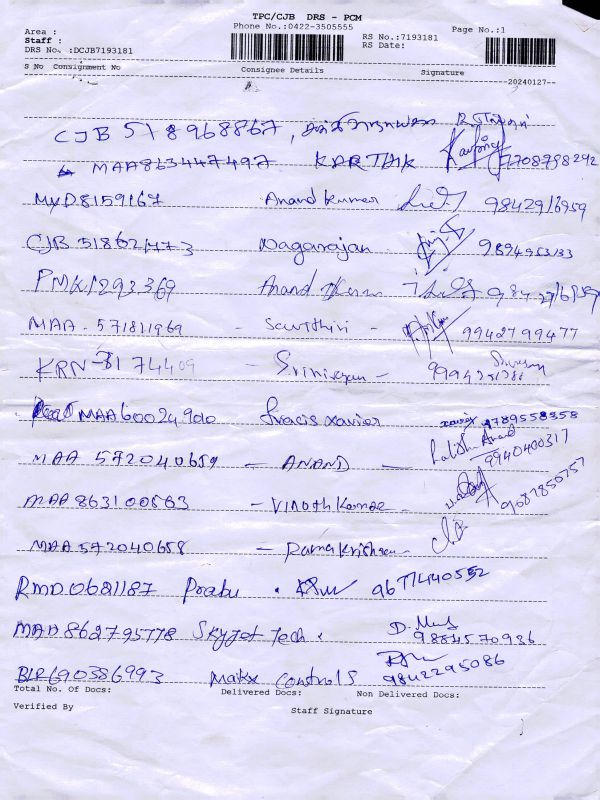 TPC/CJB DRS - PCM
Phone No.:0422-3505555
Area :
Staff :
DRS No. :DCJB7193181
RS No.:7193181
RS Date:
Page No.:1
S No Consignment No Consignee Details Signature
20240127
CJB 518968867,
MAA863447497 KARTHIK 7708798292
MYD8159167 Anand Kumar 9842916959
CJB 518621473 Nagarajan 9894953133
PMK1293369 Anand
MAA - 571811969 - Savithiri - 9942799477
KRN - 3174409 - Srinivasan -
MAA600249900 Fracis Xavier xavier 9789558358
MAA 572040659 - ANAND - 9940400317
MAA 863100563 - Vinoth Kumar 9087850757
MAA 572040658 - Ramakrishnan
RMD0621187 Prabu . 9677440552
MAA 862795778 Skyjet Tech . 9884570936
BLR690386993 Makx Controls 9842295086
Total No. Of Docs: Delivered Docs: Non Delivered Docs:
Verified By Staff Signature